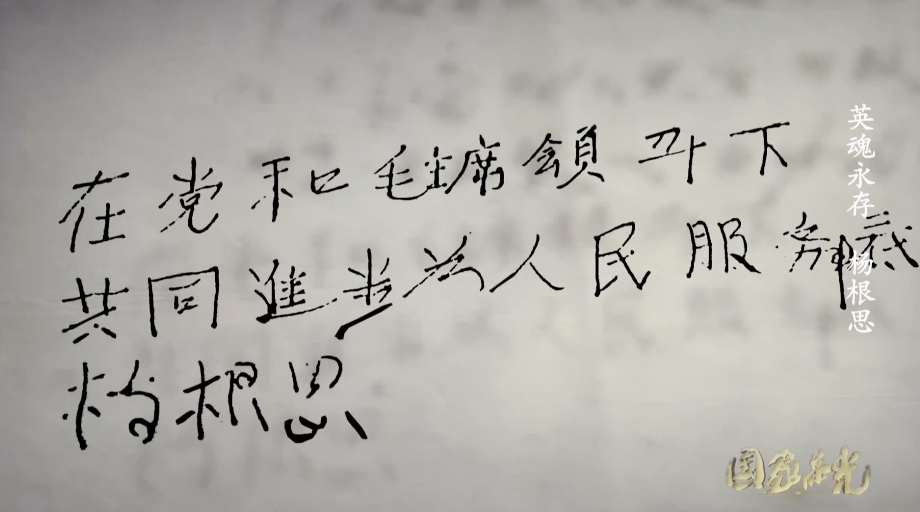 在党和毛主席領导下
共同進步为人民服务到底
杨根思
英魂永存 杨根思
国家荣光